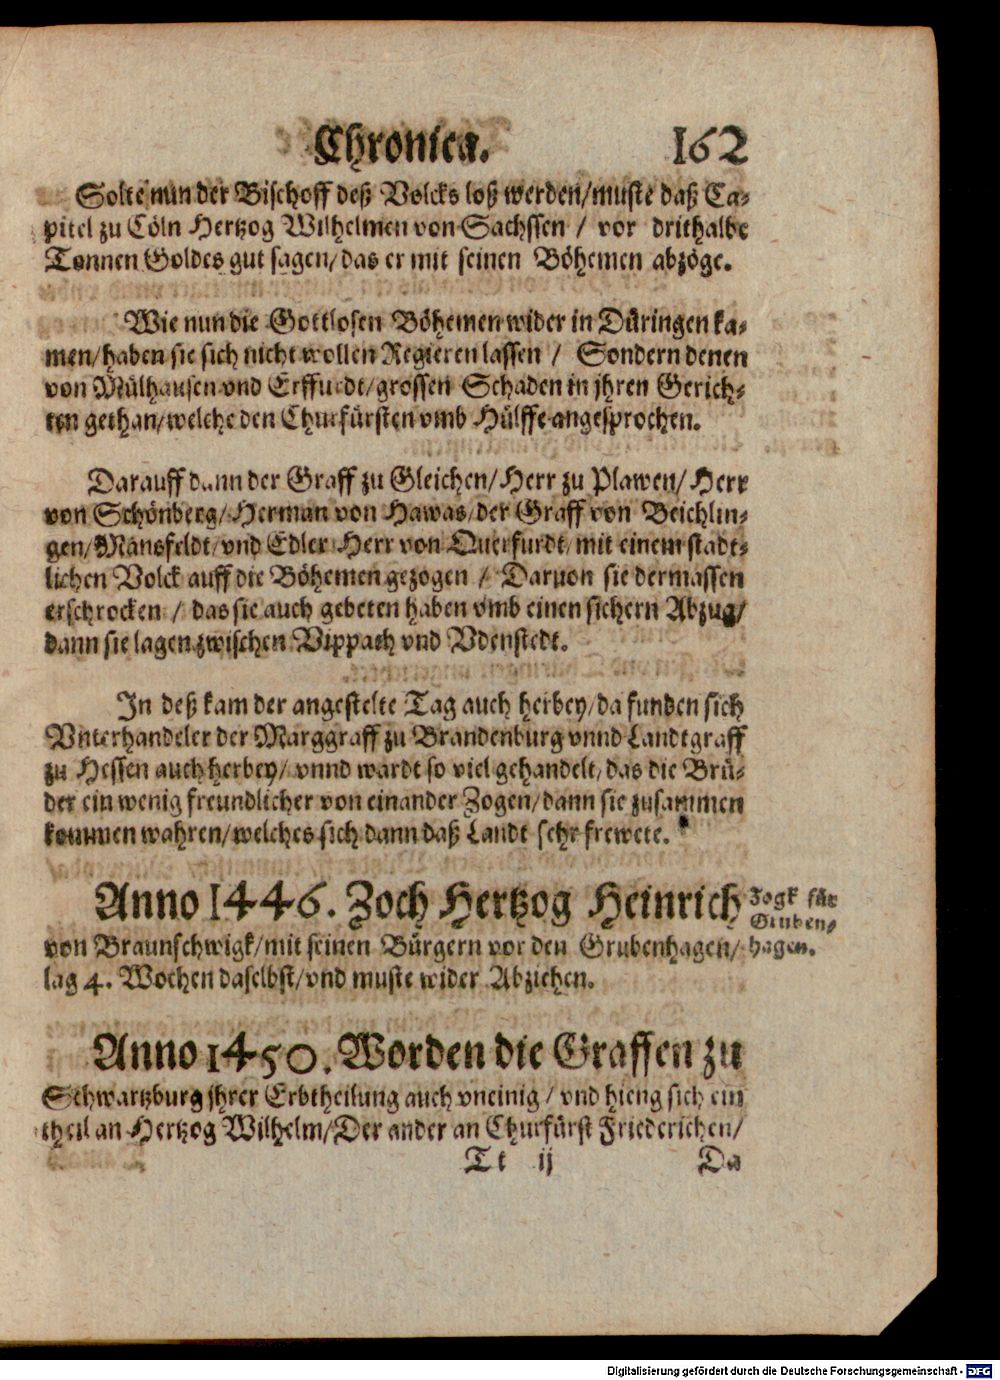 Chronica. 162
Solte nun der Bischoff deß Volcks loß werden/muste daß Ca-
pitel zu Cöln Hertzog Wilhelmen von Sachssen / vor drithalbe
Tonnen Goldes gut sagen/das er mit seinen Böhemen abzöge.
Wie nun die Gottlosen Böhemen wider in Düringen ka-
men/haben sie sich nicht wollen Regieren lassen / Sondern denen
von Mülhausen vnd Erffurdt/grossen Schaden in jhren Gerich-
ten gethan/welche den Churfürsten vmb Hülffe angesprochen.
Darauff dann der Graff zu Gleichen/Herr zu Plawen/Herr
von Schönberg/Herman von Hawas/der Graff von Beichlin-
gen/Mansfeldt/vnd Edler Herr von Querfurdt/mit einem stadt-
lichen Volck auff die Böhemen gezogen / Daruon sie dermassen
erschrocken / das sie auch gebeten haben vmb einen sichern Abzug/
dann sie lagen zwischen Vippach vnd Vdenstedt.
In deß kam der angestelte Tag auch herbey/da funden sich
Vnterhandeler der Marggraff zu Brandenburg vnnd Landtgraff
zu Hessen auch herbey/vnnd wardt so viel gehandelt/das die Brü-
der ein wenig freundlicher von einander Zogen/dann sie zusammen
kommen wahren/welches sich dann daß Landt sehr frewete.
Anno 1446. Zoch Hertzog Heinrich
von Braunschwigk/mit seinen Bürgern vor den Grubenhagen/
lag 4. Wochen daselbst/vnd muste wider Abziehen.
Zogk für
Gruben-
hagen.
Anno 1450. Worden die Graffen zu
Schwartzburg jhrer Erbtheilung auch vneinig / vnd hieng sich ein
theil an Hertzog Wilhelm/Der ander an Churfürst Friederichen/
Tt ij Da
Digitalisierung gefördert durch die Deutsche Forschungsgemeinschaft - DFG